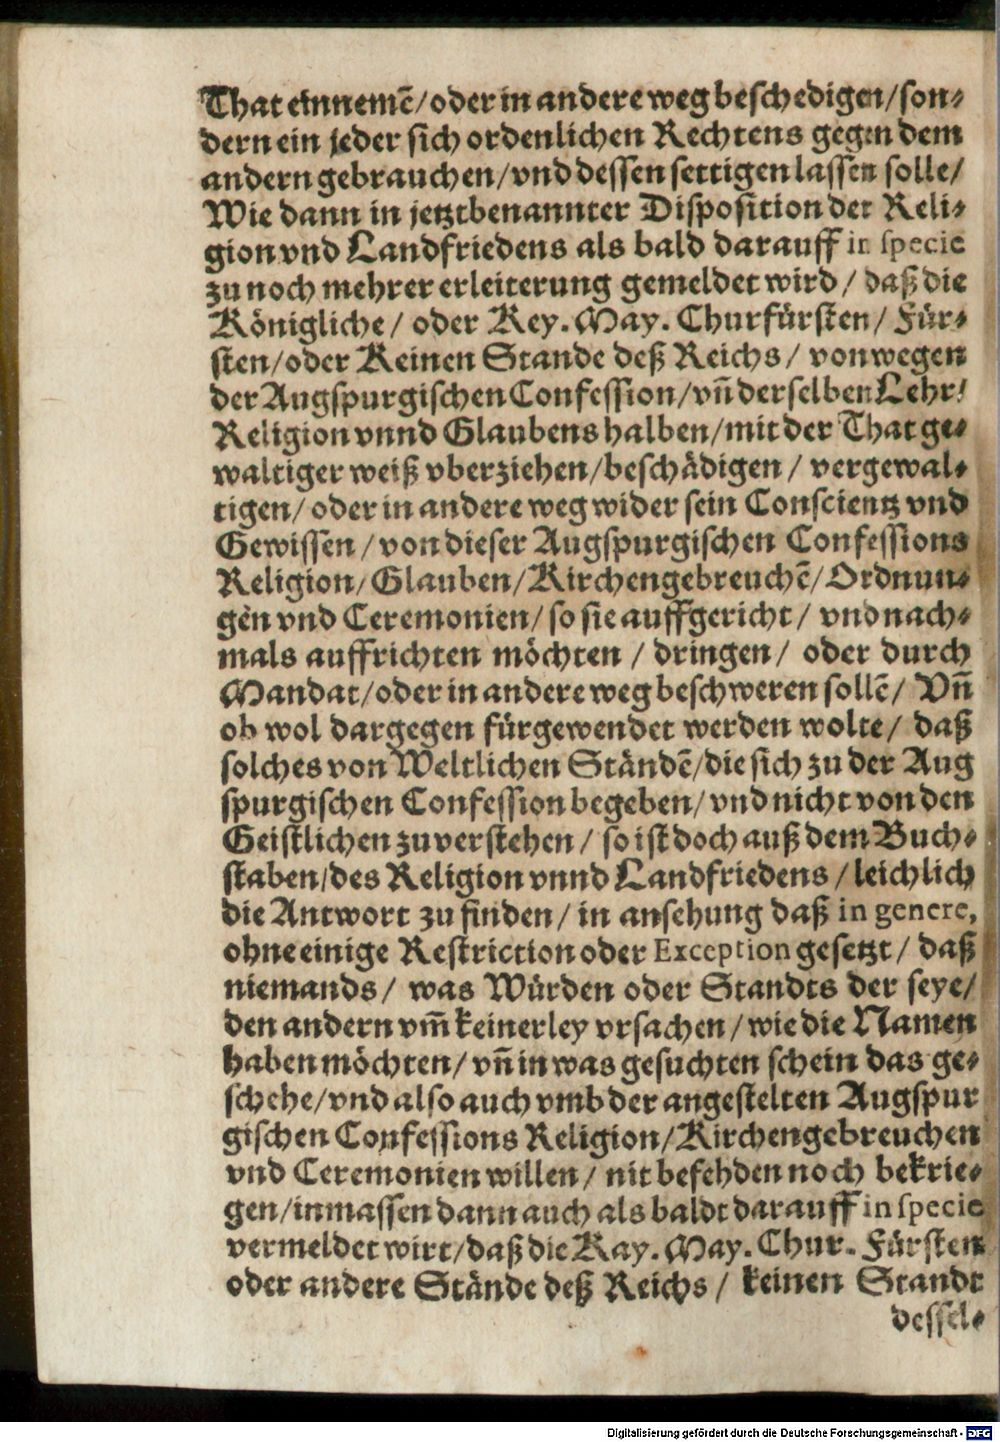 That einnemẽ/oder in andere weg beschedigen/son⸗
dern ein jeder sich ordenlichen Rechtens gegen dem
andern gebrauchen/vnd dessen settigen lassen solle/
Wie dann in jetztbenannter Disposition der Reli⸗
gion vnd Landfriedens als bald darauff in specie
zu noch mehrer erleiterung gemeldet wird/ daß die
Königliche/ oder Key. May. Churfürsten/ Für⸗
sten/oder Keinen Stande deß Reichs/ von wegen
der Augspurgischen Confession/vñ derselben Lehr/
Religion vnnd Glaubens halben/mit der That ge⸗
waltiger weiß vberziehen/beschädigen/ vergewal⸗
tigen/ oder in andere weg wider sein Conscientz vnd
Gewissen/von dieser Augspurgischen Confessions
Religion/ Glauben/Kirchengebreuchẽ/Ordnun⸗
gen vnd Ceremonien/ so sie auffgericht/ vnd nach⸗
mals auffrichten möchten/ dringen/ oder durch
Mandat/oder in andere weg beschweren sollẽ/ Vñ
ob wol dargegen fürgewendet werden wolte/ daß
solches von Weltlichen Ständẽ/die sich zu der Aug
spurgischen Confession begeben/vnd nicht von den
Geistlichen zuverstehen/ so ist doch auß dem Buch⸗
staben/des Religion vnnd Landfriedens/leichlich
die Antwort zu finden/in ansehung daß in genere,
ohne einige Restriction oder Exception gesetzt/ daß
niemands/ was Würden oder Standts der seye/
den andern vm̃ keinerley vrsachen/wie die Namen
haben möchten/vñ in was gesuchten schein das ge⸗
schehe/vnd also auch vmb der angestelten Augspur
gischen Confessions Religion/Kirchengebreuchen
vnd Ceremonien willen/ nit befehden noch bekrie⸗
gen/inmassen dann auch als baldt darauff in specie
vermeldet wirt/daß die Kay. May. Chur. Fürsten
oder andere Stände deß Reichs/ keinen Standt
dessel⸗
Digitalisierung gefördert durch die Deutsche Forschungsgemeinschaft - DFG